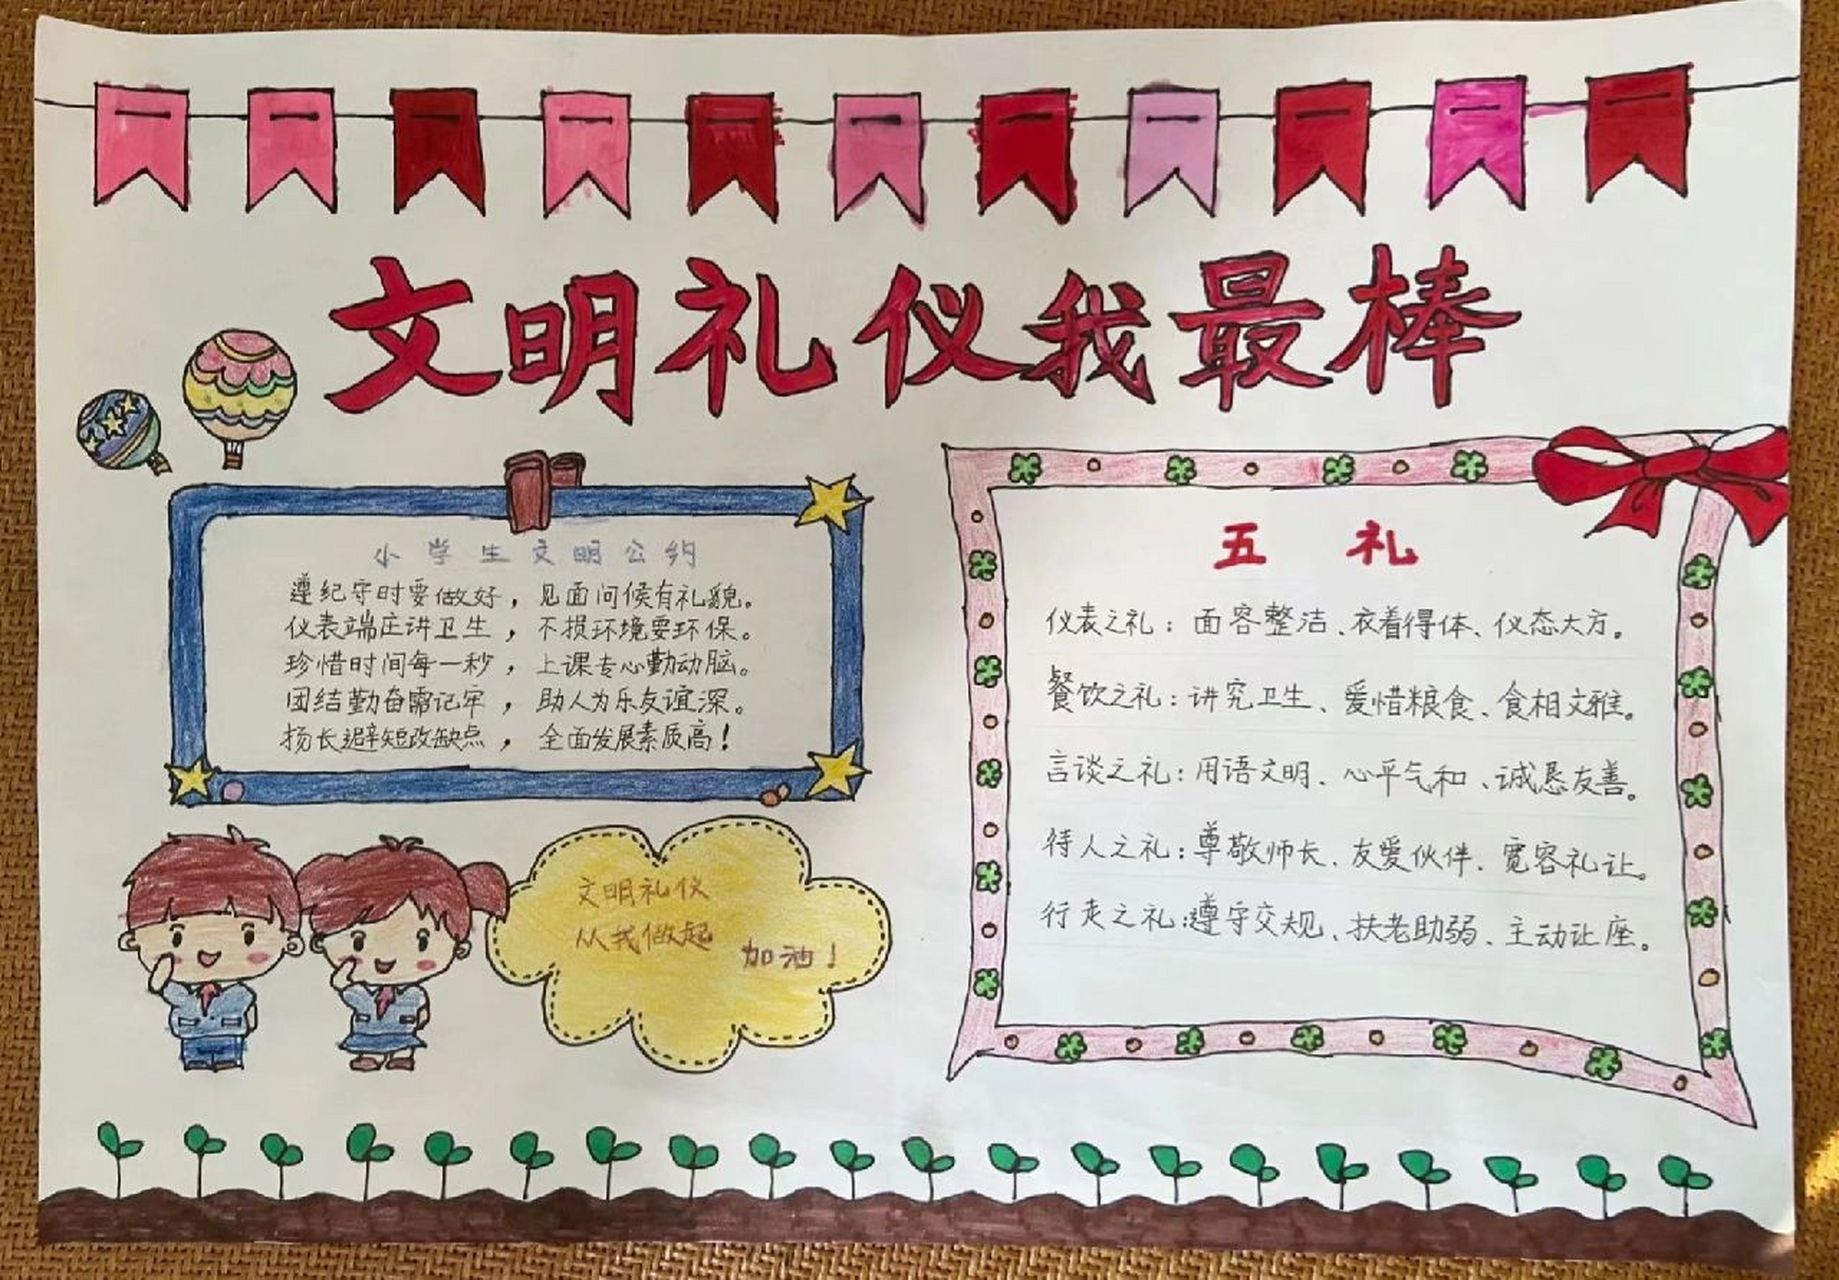 文明礼仪我最棒
小学生文明公约
遵纪守时要做好，见面问候有礼貌。
仪表端庄讲卫生，不损环境要环保。
珍惜时间每一秒，上课专心勤动脑。
团结勤奋需记牢，助人为乐友谊深。
扬长避短改缺点，全面发展素质高！
文明礼仪
从我做起
加油！
五礼
仪表之礼：面容整洁、衣着得体、仪态大方。
餐饮之礼：讲究卫生、爱惜粮食、食相文雅。
言谈之礼：用语文明、心平气和、诚恳友善。
待人之礼：尊敬师长、友爱伙伴、宽容礼让。
行走之礼：遵守交规、扶老助弱、主动让座。